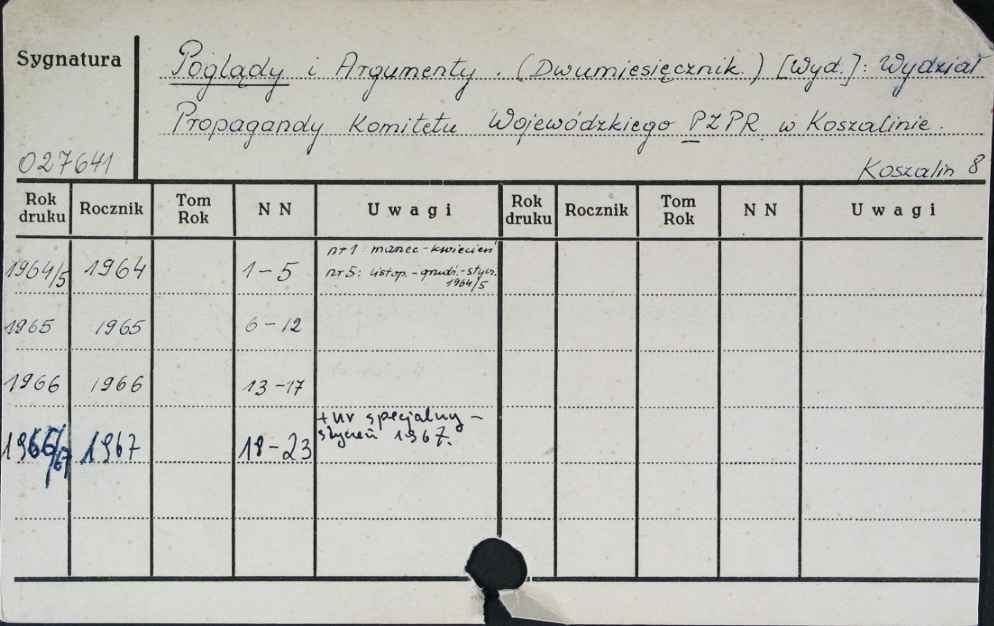 Sygnatura
Poglądy i Argumenty. (Dwumiesięcznik.) [Wyd.]: Wydział
Propagandy Komitetu Wojewódzkiego PZPR w Koszalinie.
027641
Koszalin 8
Rok druku Rocznik Tom Rok NN Uwagi Rok druku Rocznik Tom Rok NN Uwagi
nr 1: marzec-kwiecień
1964/5 1964 1-5 nr 5: listop.-grudz.-stycz.
1964/5
1965 1965 6-12
1966 1966 13-17
+ nr specjalny -
1966/67 1967 18-23 styczeń 1967.